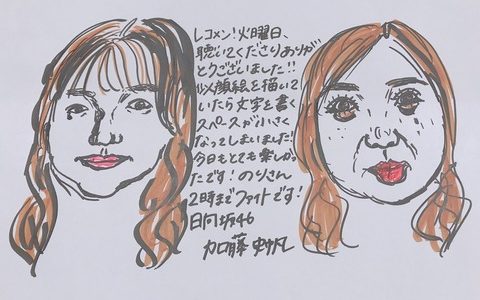 レコメン!火曜日、
聴いてくださりありが
とうございました!!
似顔絵を描いて
いたら文字を書く
スペースが小さく
なってしまいました!
今日もとても楽しかっ
たです!のりさん
2時までファイトです!
日向坂46
加藤史帆